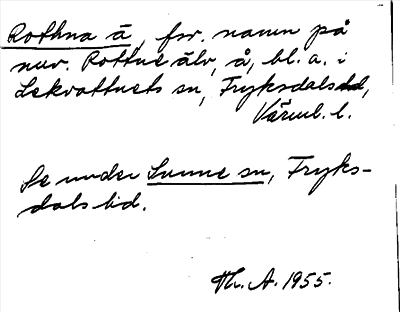 Rothna å, fsv. namn på
nuv. Rottne älv, å, bl. a. i
Lekvattnets sn, Fryksdals hd,
Värml. l.
Se under Sunne sn, Fryks-
dals hd.
Th. A. 1955.